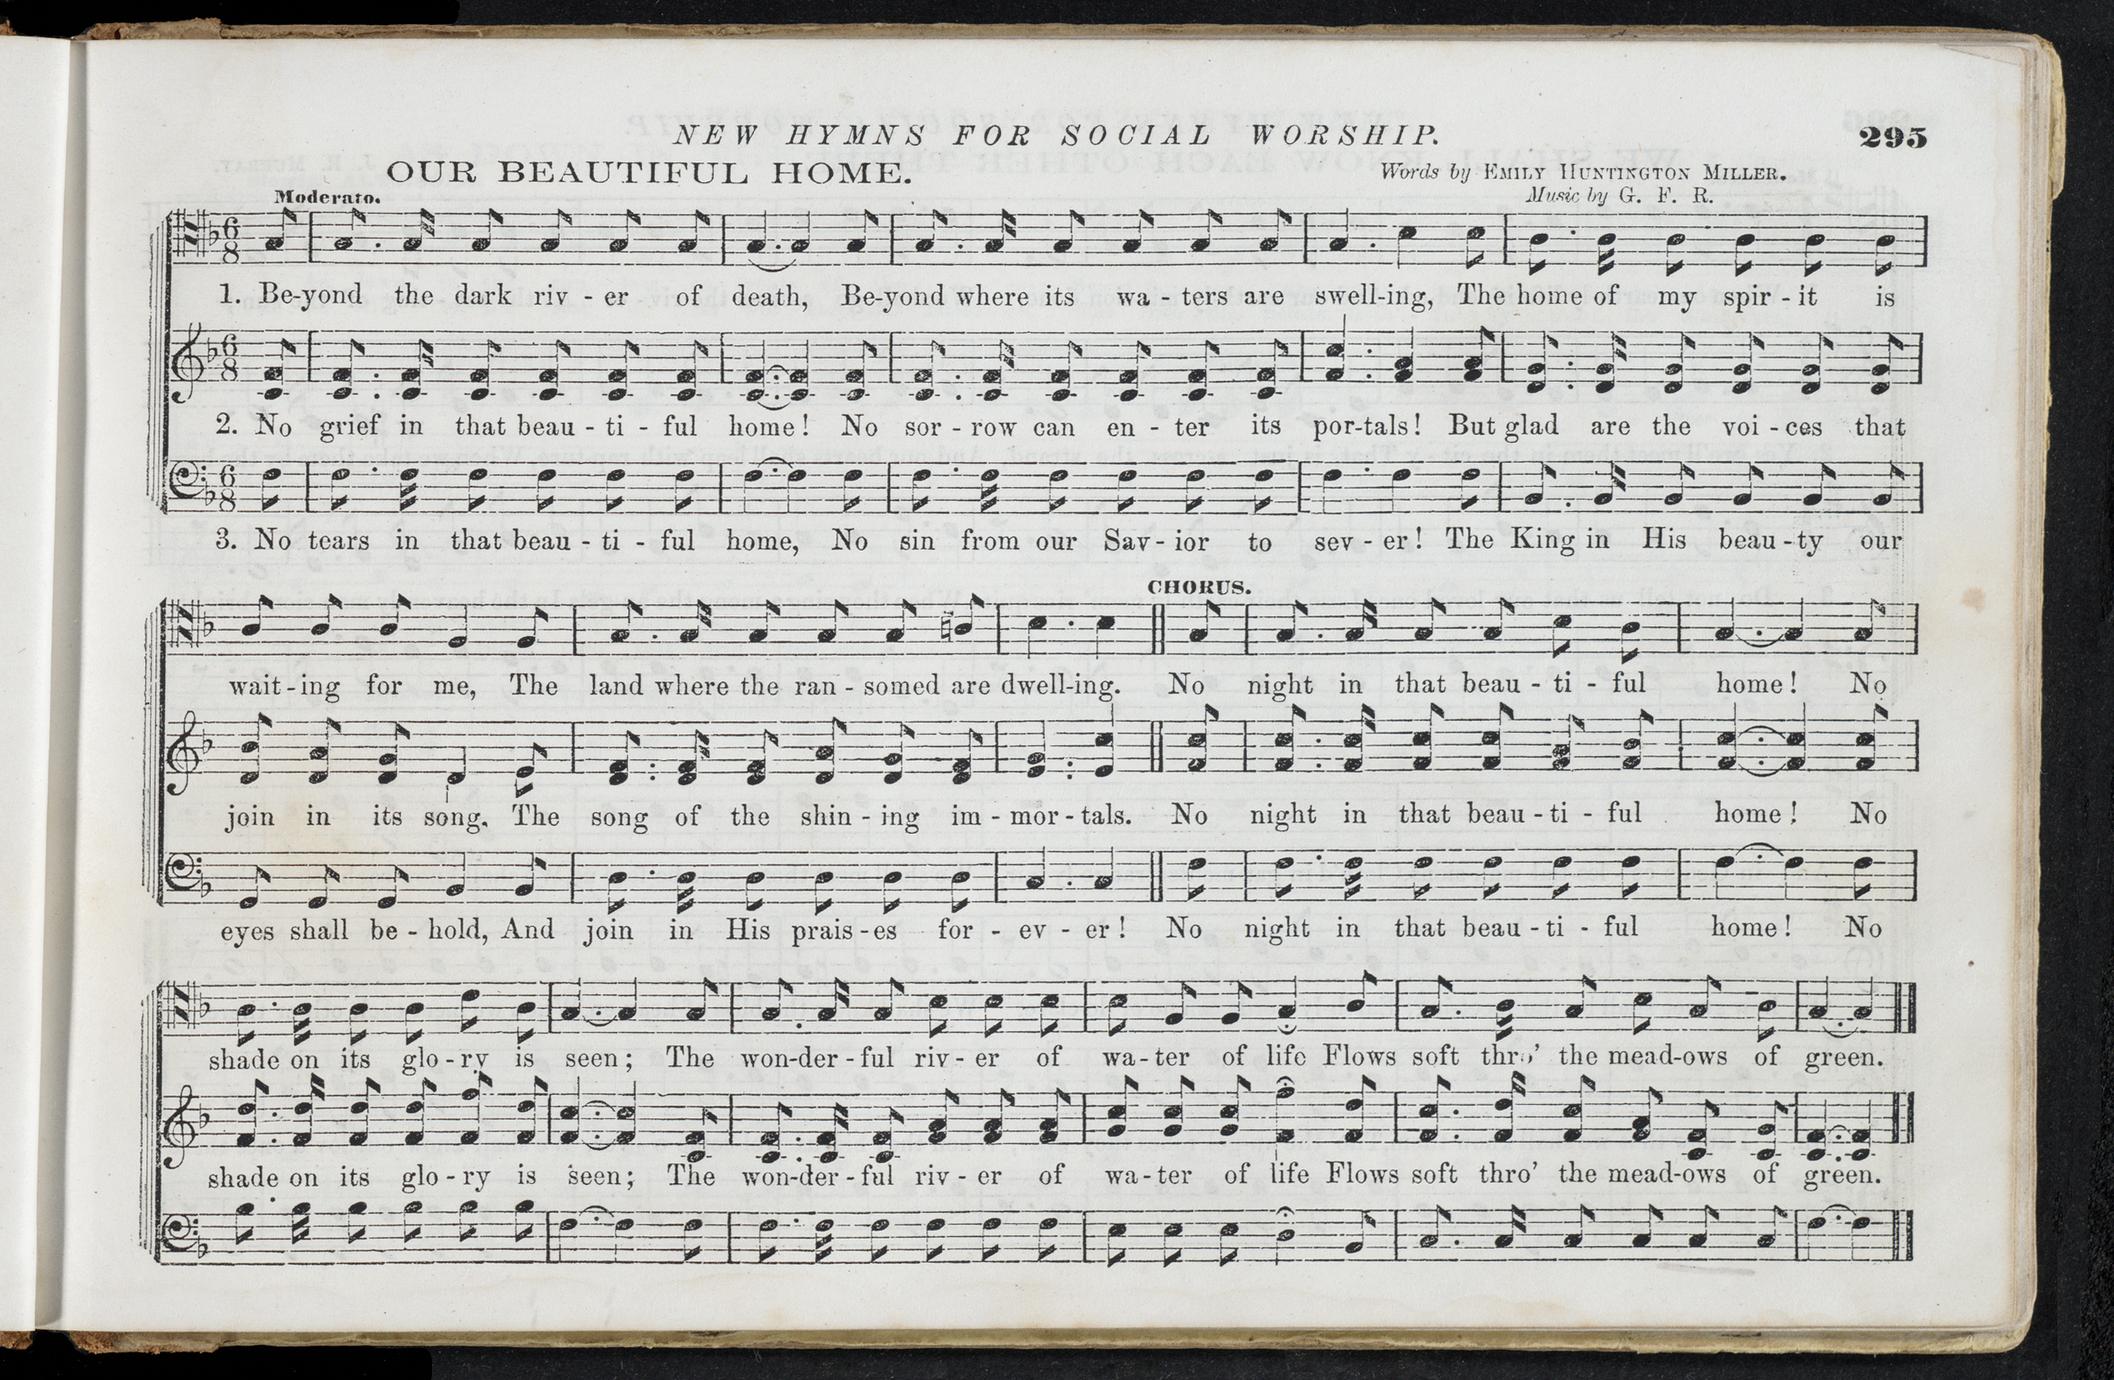 NEW HYMNS FOR SOCIAL WORSHIP. 295
OUR BEAUTIFUL HOME.
Words by EMILY HUNTINGTON MILLER.
Music by G. F. R.
Moderato.
1. Be-yond the dark riv - er of death, Be-yond where its wa - ters are swell-ing, The home of my spir - it is
2. No grief in that beau - ti - ful home! No sor - row can en - ter its por-tals! But glad are the voi - ces that
3. No tears in that beau - ti - ful home, No sin from our Sav - ior to sev - er! The King in His beau - ty our
CHORUS.
wait - ing for me, The land where the ran - somed are dwell-ing. No night in that beau - ti - ful home! No
join in its song, The song of the shin - ing im - mor - tals. No night in that beau - ti - ful home! No
eyes shall be - hold, And join in His prais - es for - ev - er! No night in that beau - ti - ful home! No
shade on its glo - ry is seen; The won-der - ful riv - er of wa - ter of life Flows soft thro' the mead-ows of green.
shade on its glo - ry is seen; The won-der - ful riv - er of wa - ter of life Flows soft thro' the mead-ows of green.